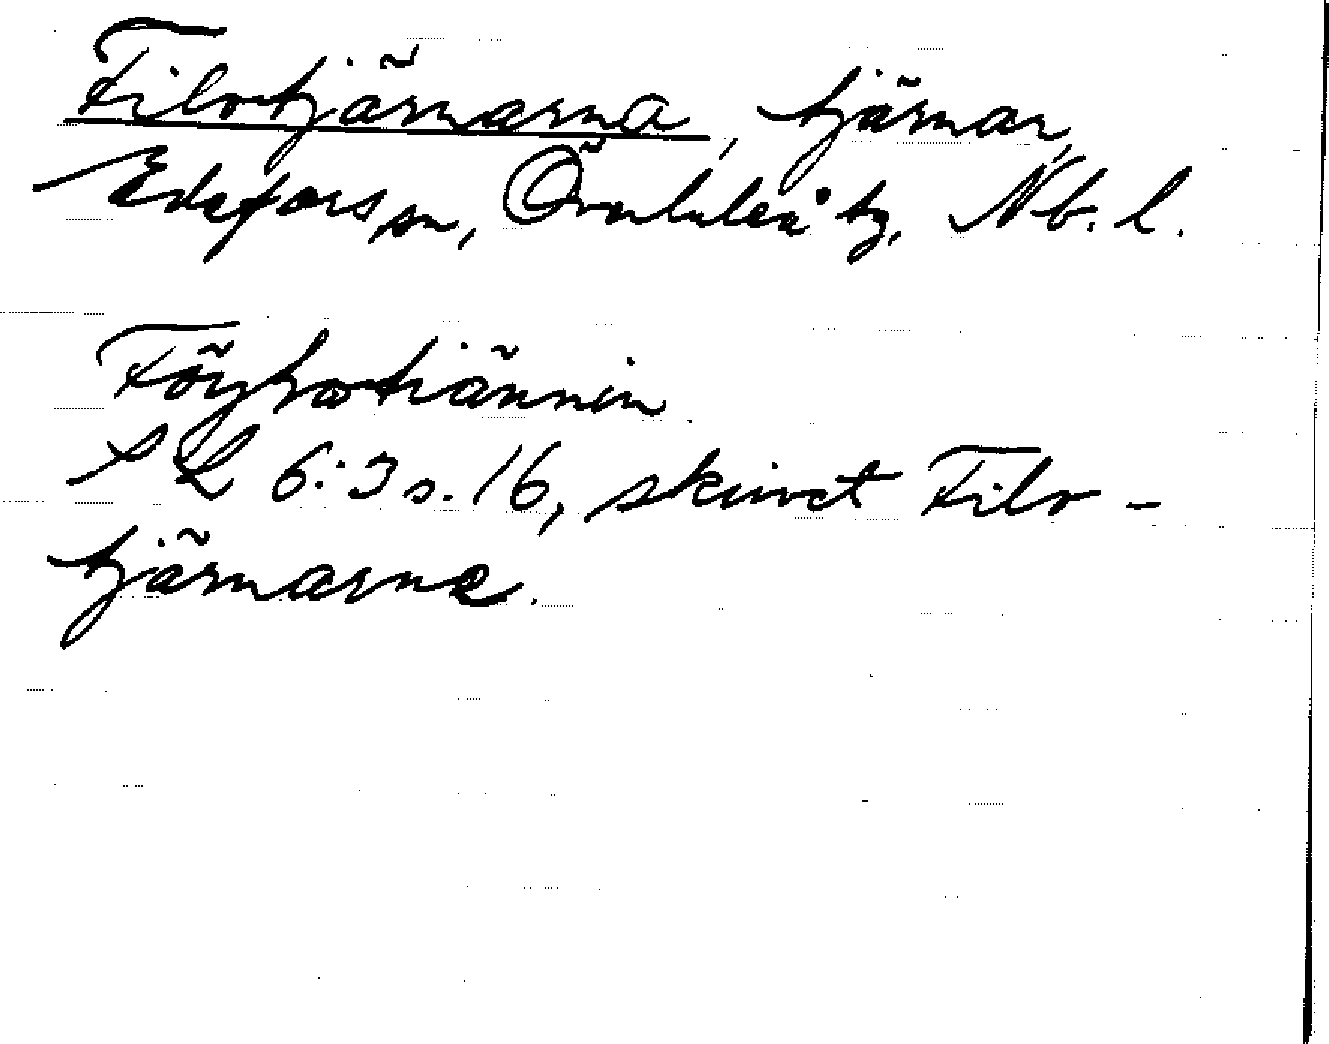 Filvotjärnarna, tjärnar,
Edefors sn, Överluleå tg, Nb. l.
SL 6:3 s. 16, skrivet Filv-
tjärnarne.